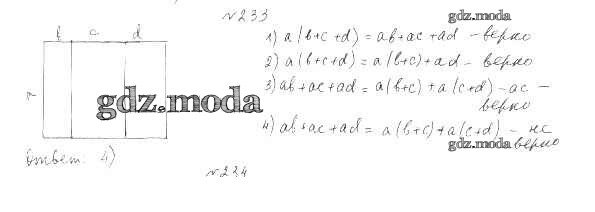 №233
gdz.moda
b c d
a
1) a(b+c+d) = ab+ac+ad – верно
2) a(b+c+d) = a(b+c)+ad – верно
3) ab+ac+ad = a(b+c)+a(c+d)-ac –
верно
gdz.moda
4) ab+ac+ad = a(b+c)+a(c+d) – не
верно
gdz.moda
Ответ. 4)
№234